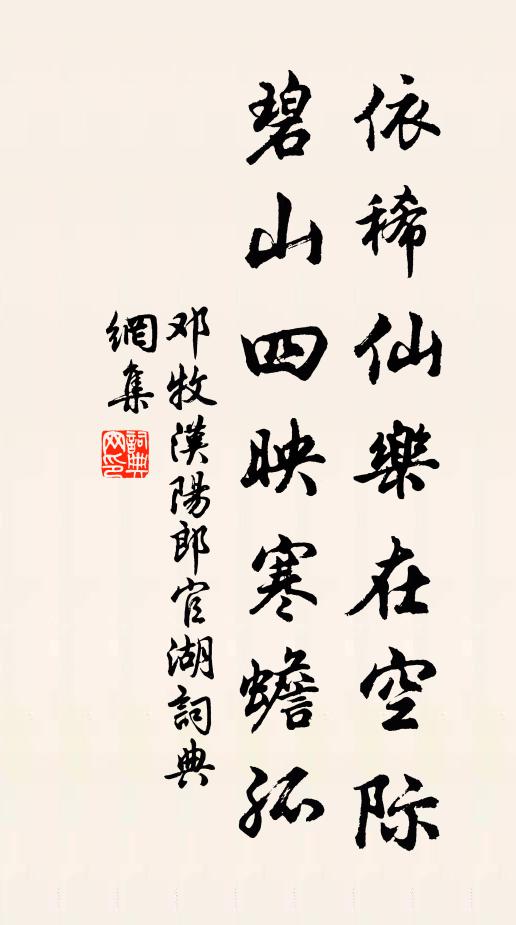 依稀仙樂在空际
碧山四映寒蟾孤
邓牧漢陽郎官湖詞典
網集
詞典网印